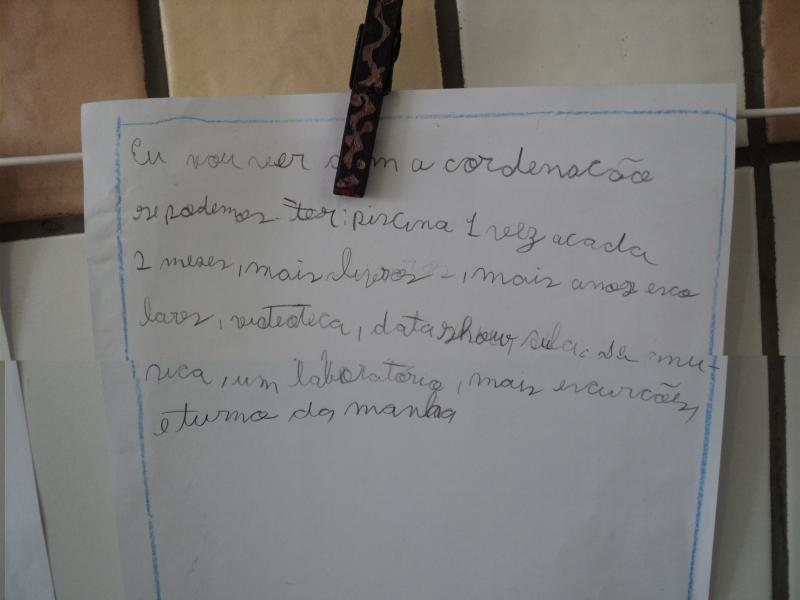 Eu vou ver com a cordenação
se podemos ter: piscina 1 vez acada
2 meses, mais livros, mais anos esco
lares, videoteca, datashow, sala de mu-
sica, um laboratório, mais excurcões,
e turno da manha